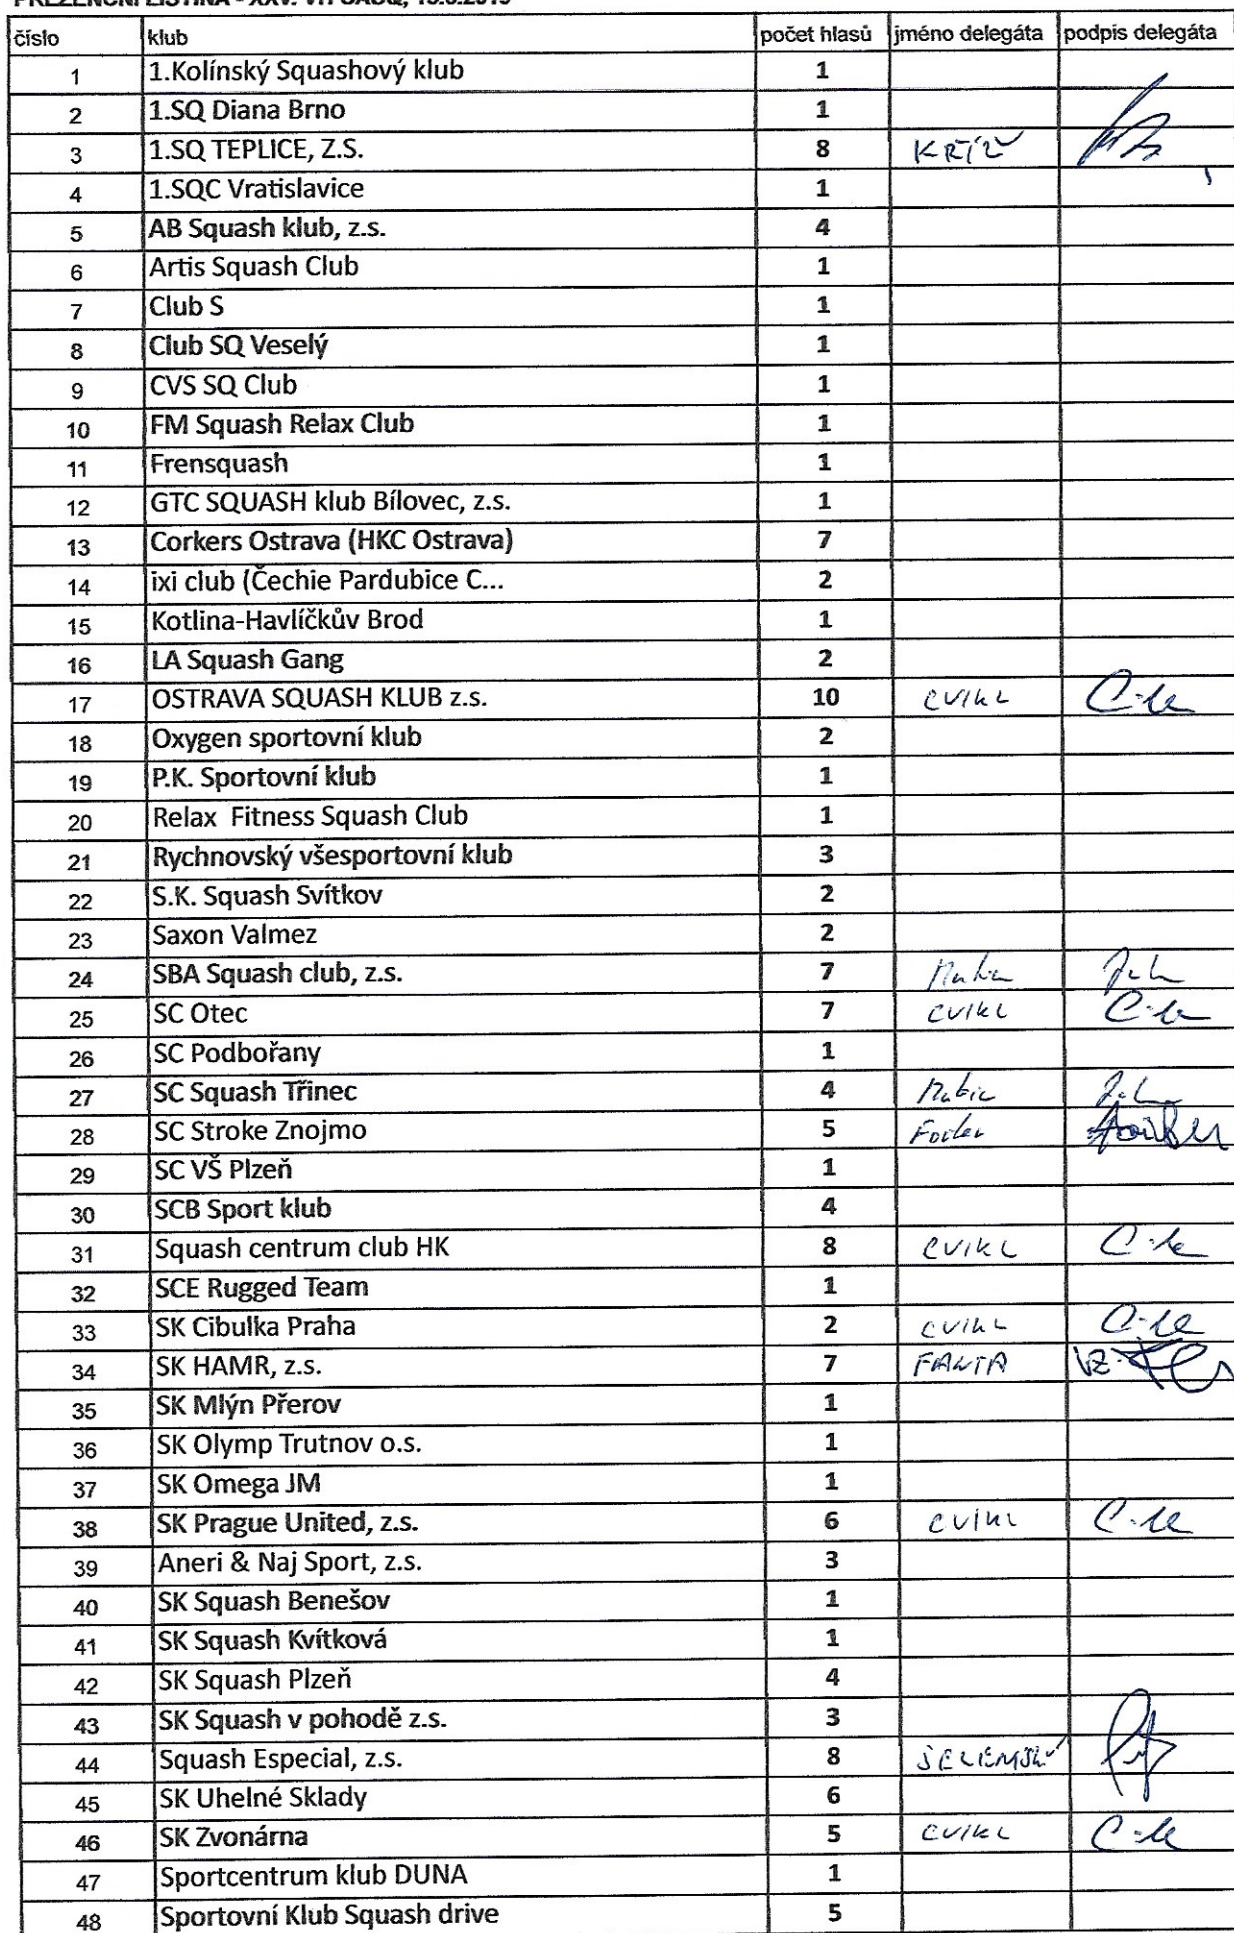 číslo klub počet hlasů jméno delegáta podpis delegáta
1 1.Kolínský Squashový klub 1
2 1.SQ Diana Brno 1
3 1.SQ TEPLICE, Z.S. 8 KŘÍŽ
4 1.SQC Vratislavice 1
5 AB Squash klub, z.s. 4
6 Artis Squash Club 1
7 Club S 1
8 Club SQ Veselý 1
9 CVS SQ Club 1
10 FM Squash Relax Club 1
11 Frensquash 1
12 GTC SQUASH klub Bílovec, z.s. 1
13 Corkers Ostrava (HKC Ostrava) 7
14 ixi club (Čechie Pardubice C... 2
15 Kotlina-Havlíčkův Brod 1
16 LA Squash Gang 2
17 OSTRAVA SQUASH KLUB z.s. 10 CVIKL
18 Oxygen sportovní klub 2
19 P.K. Sportovní klub 1
20 Relax Fitness Squash Club 1
21 Rychnovský všesportovní klub 3
22 S.K. Squash Svítkov 2
23 Saxon Valmez 2
24 SBA Squash club, z.s. 7
25 SC Otec 7 CVIKL
26 SC Podbořany 1
27 SC Squash Třinec 4
28 SC Stroke Znojmo 5
29 SC VŠ Plzeň 1
30 SCB Sport klub 4
31 Squash centrum club HK 8 CVIKL
32 SCE Rugged Team 1
33 SK Cibulka Praha 2 CVIKL
34 SK HAMR, z.s. 7 FANTA
35 SK Mlýn Přerov 1
36 SK Olymp Trutnov o.s. 1
37 SK Omega JM 1
38 SK Prague United, z.s. 6 CVIKL
39 Aneri & Naj Sport, z.s. 3
40 SK Squash Benešov 1
41 SK Squash Kvítková 1
42 SK Squash Plzeň 4
43 SK Squash v pohodě z.s. 3
44 Squash Especial, z.s. 8
45 SK Uhelné Sklady 6
46 SK Zvonárna 5 CVIKL
47 Sportcentrum klub DUNA 1
48 Sportovní Klub Squash drive 5